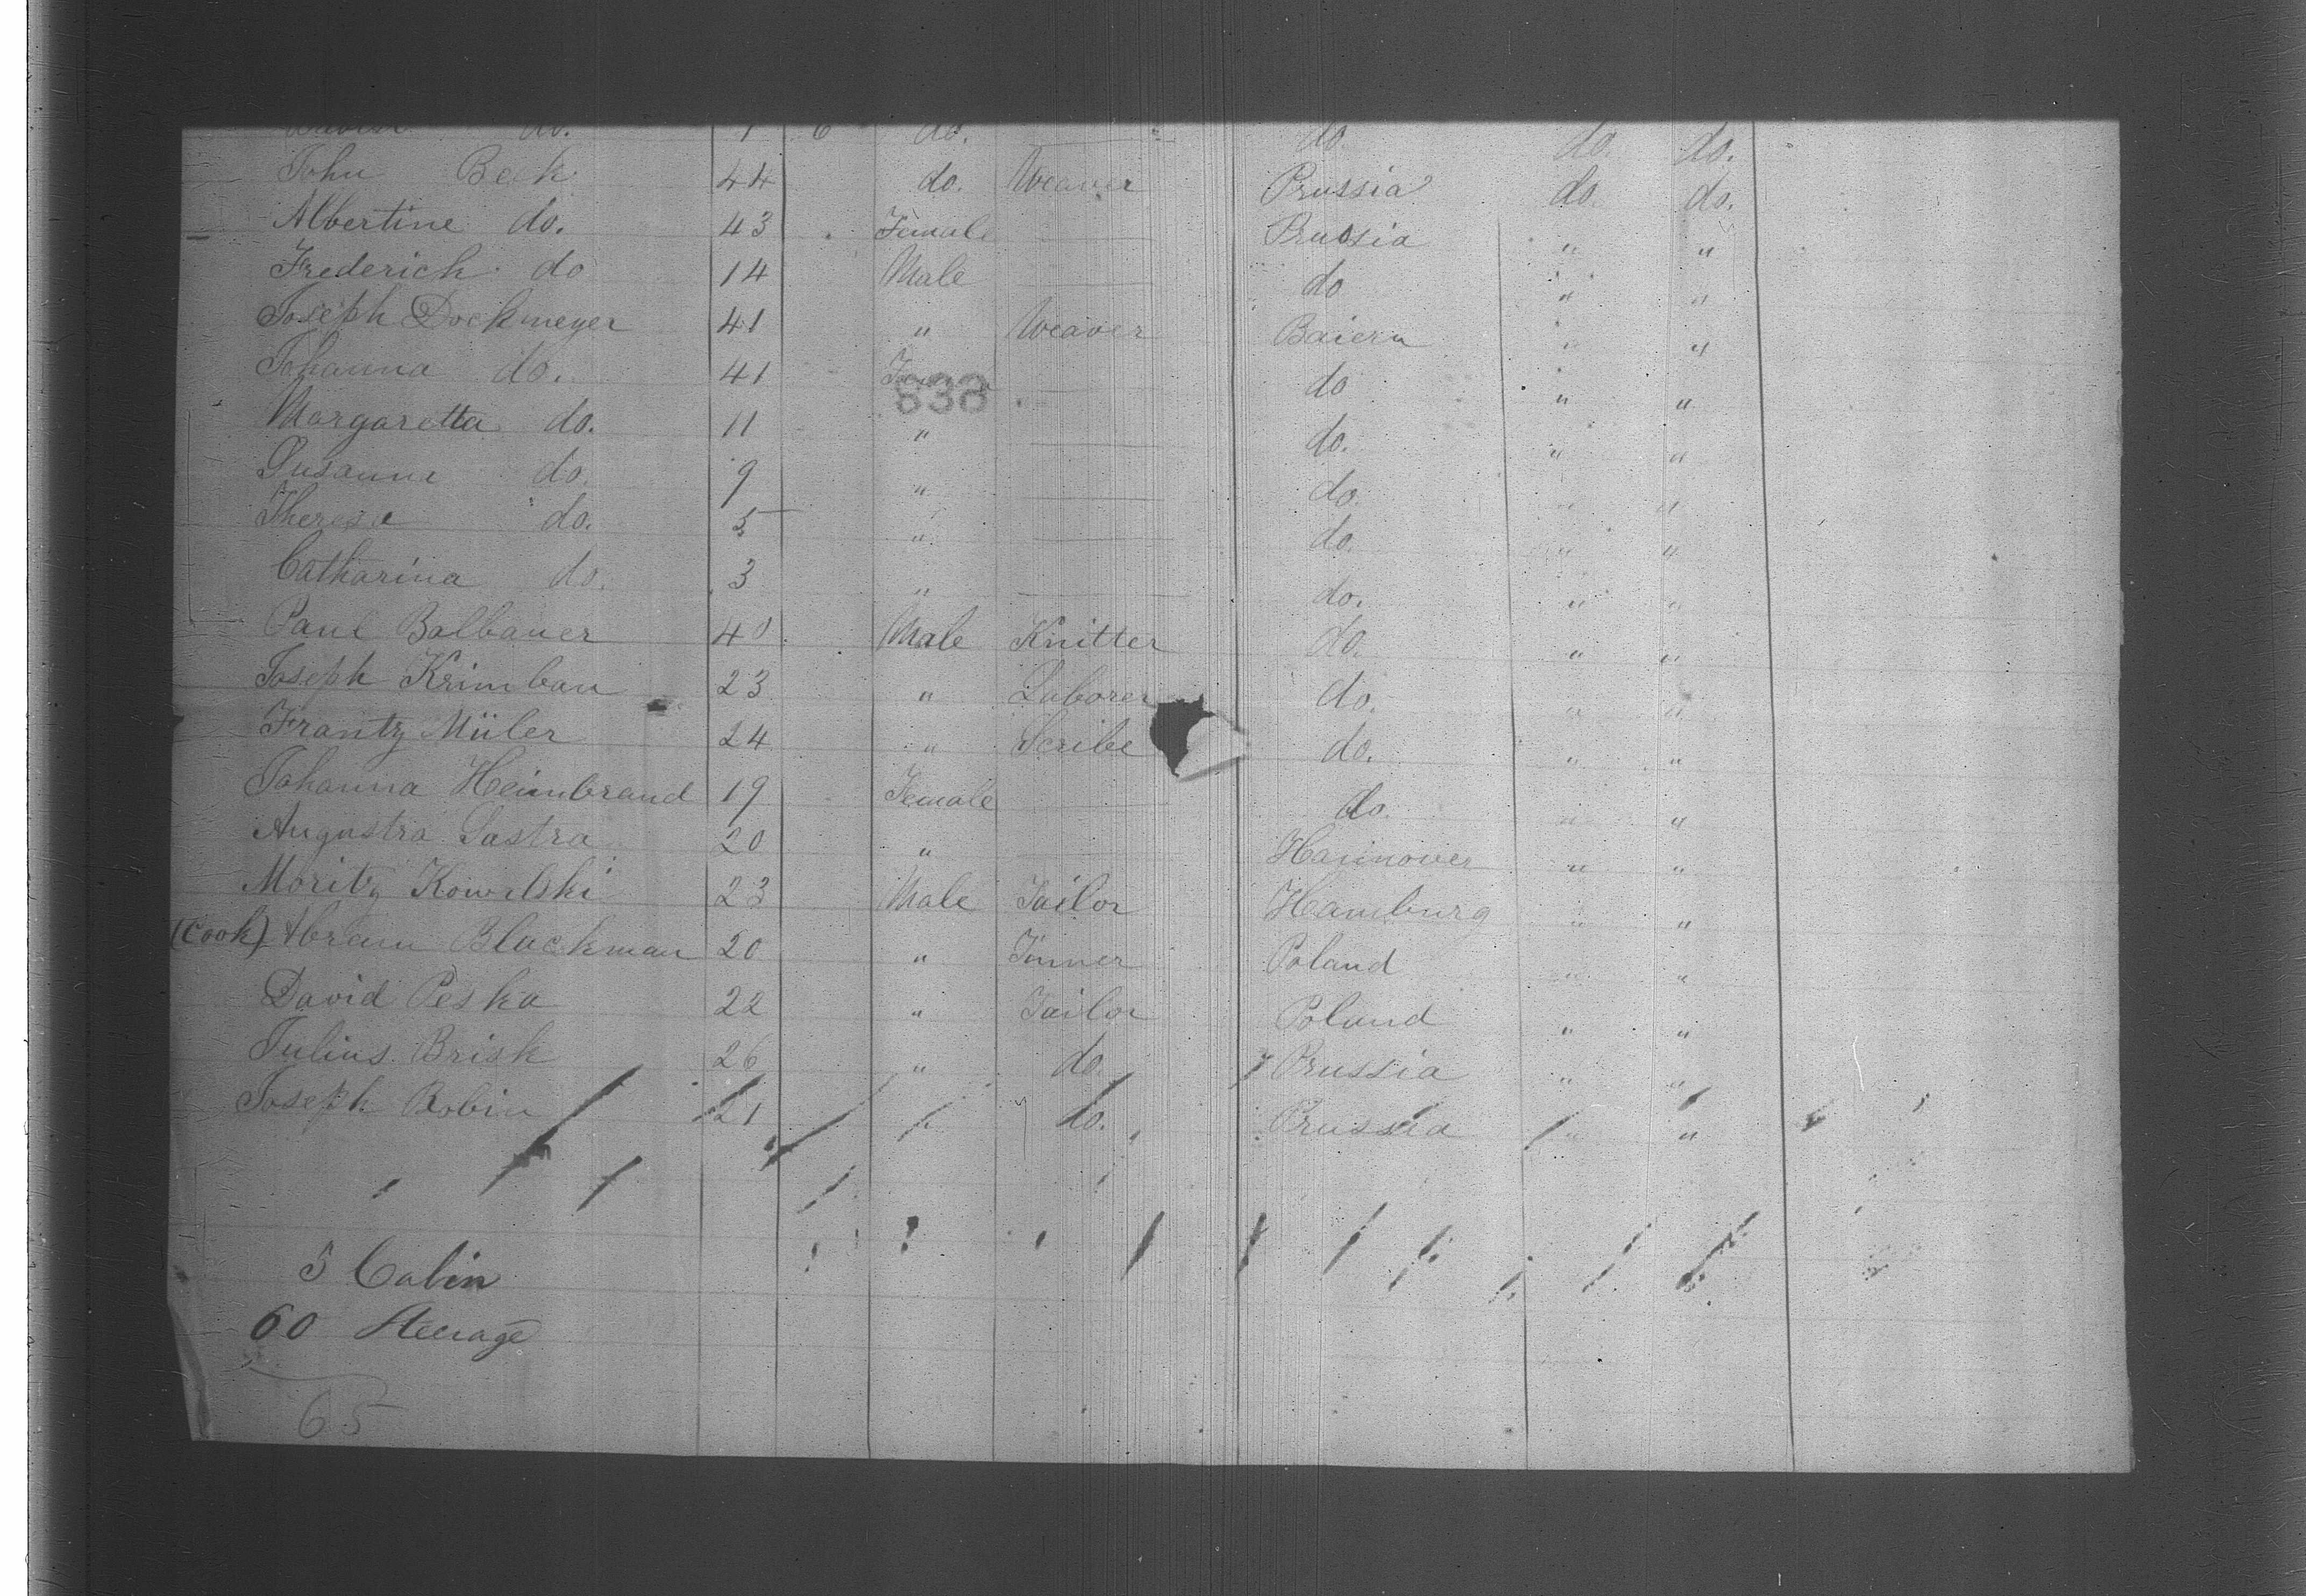 do. 1 6 do. do. do. do.
John Beck 44 do. Weaver Prussia do. do.
Albertine do. 43 Female Prussia " "
Frederich do 14 Male do " "
Joseph Dockmeyer 41 " Weaver Baiern " "
Johanna do. 41 do " "
838
Margaretta do. 11 " do. " "
Susanna do. 9 " do. " "
Therese do. 5 " do. " "
Catharina do. 3 " do. " "
Paul Balbauer 40 Male Knitter do. " "
Joseph Krimbau 23 " Laborer do. " "
Frantz Müler 24 " Scribe do. " "
Johanna Heimbrand 19 Female do. " "
Augustra Sastra 20 " Hannover " "
Moritz Kowilski 23 Male Tailor Hamburg " "
(Cook) Abram Blackman 20 " Tinner Poland " "
David Peska 22 " Tailor Poland " "
Julius Brisk 26 " do. Prussia " "
Joseph Robin 21 " do. Prussia " "
5 Cabin
60 Steerage
65